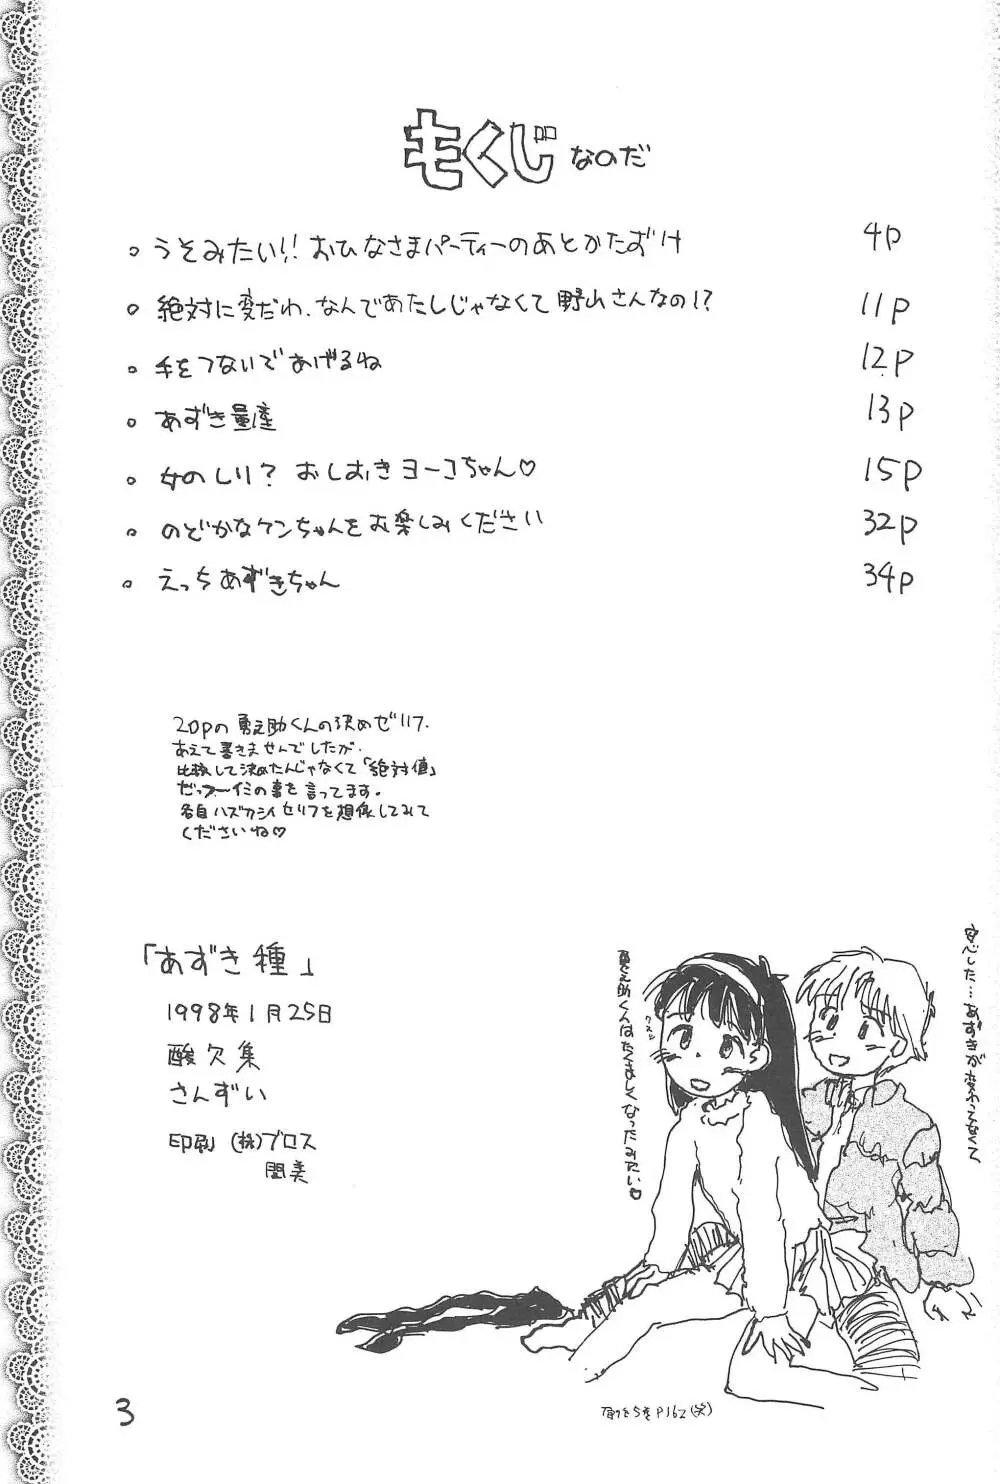 もくじなのだ
うそみたい!! おひなさまパーティーのあとかたずけ 4P
絶対に変だわ、なんであたしじゃなくて野山さんなの!? 11P
手をつないであげるね 12P
あずき量産 13P
女のしり? おしおきヨーコちゃん♡ 15P
のどかなケンちゃんをお楽しみください 32P
えっちあずきちゃん 34P
20Pの勇之助くんの決めゼリフ、
あえて書きませんでしたが、
比較して決めたんじゃなくて「絶対値」
だっつーイミの事を言ってます。
各自ハズカシイセリフを想像してみて
くださいね♡
安心した…あずきが変わってなくて
勇之助くんはたくましくなったみたい♡
クスン
「あずき種」
1998年1月25日
酸欠集
さんずい
印刷 (株)ブロス
P162(笑)
3